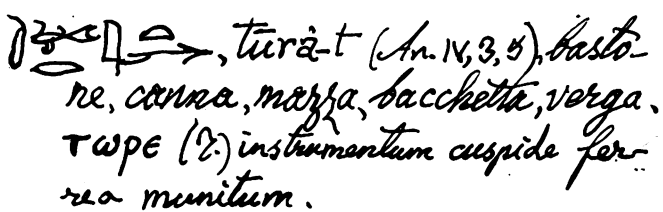 , turȧ-t (An. IV, 3, 5), basto-
ne, canna, mazza, bacchetta, verga.
ⲧⲱⲣⲉ (Z.) instrumentum cuspide fer-
rea munitum.